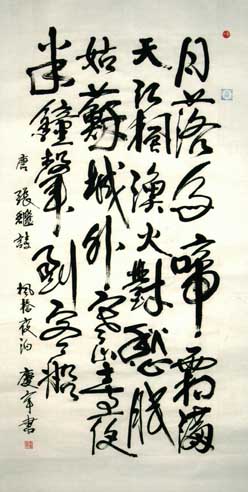 月落烏啼霜滿
天江楓漁火對愁眠
姑蘇城外寒山寺夜
半鐘聲到客船
唐 張繼詩 楓橋夜泊 書